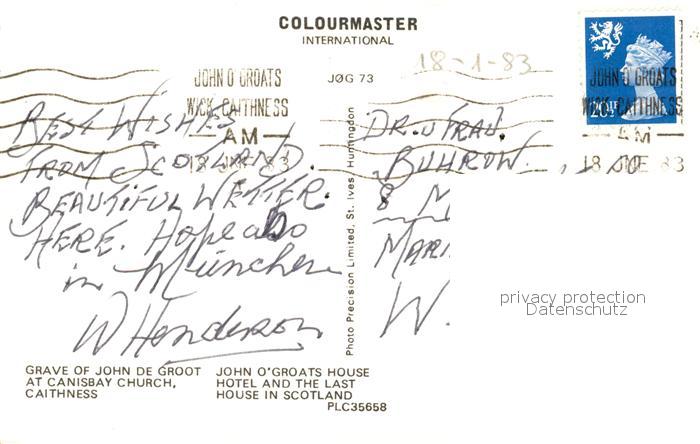 COLOURMASTER
INTERNATIONAL
18-1-83
JOHN O'GROATS
WICK, CAITHNESS
AM
18 JNE 83
JØG 73
JOHN O'GROATS
WICK, CAITHNESS
AM
18 JNE 83
BEST WISHES
FROM SCOTLAND.
BEAUTIFUL WETTER.
HERE. Hope also
in München
W Henderson
Photo Precision Limited, St. Ives, Huntingdon
DR. u FRAU.
BUHROW.
8 M
MARI
W.
privacy protection
Datenschutz
GRAVE OF JOHN DE GROOT
AT CANISBAY CHURCH,
CAITHNESS
JOHN O'GROATS HOUSE
HOTEL AND THE LAST
HOUSE IN SCOTLAND
PLC35658